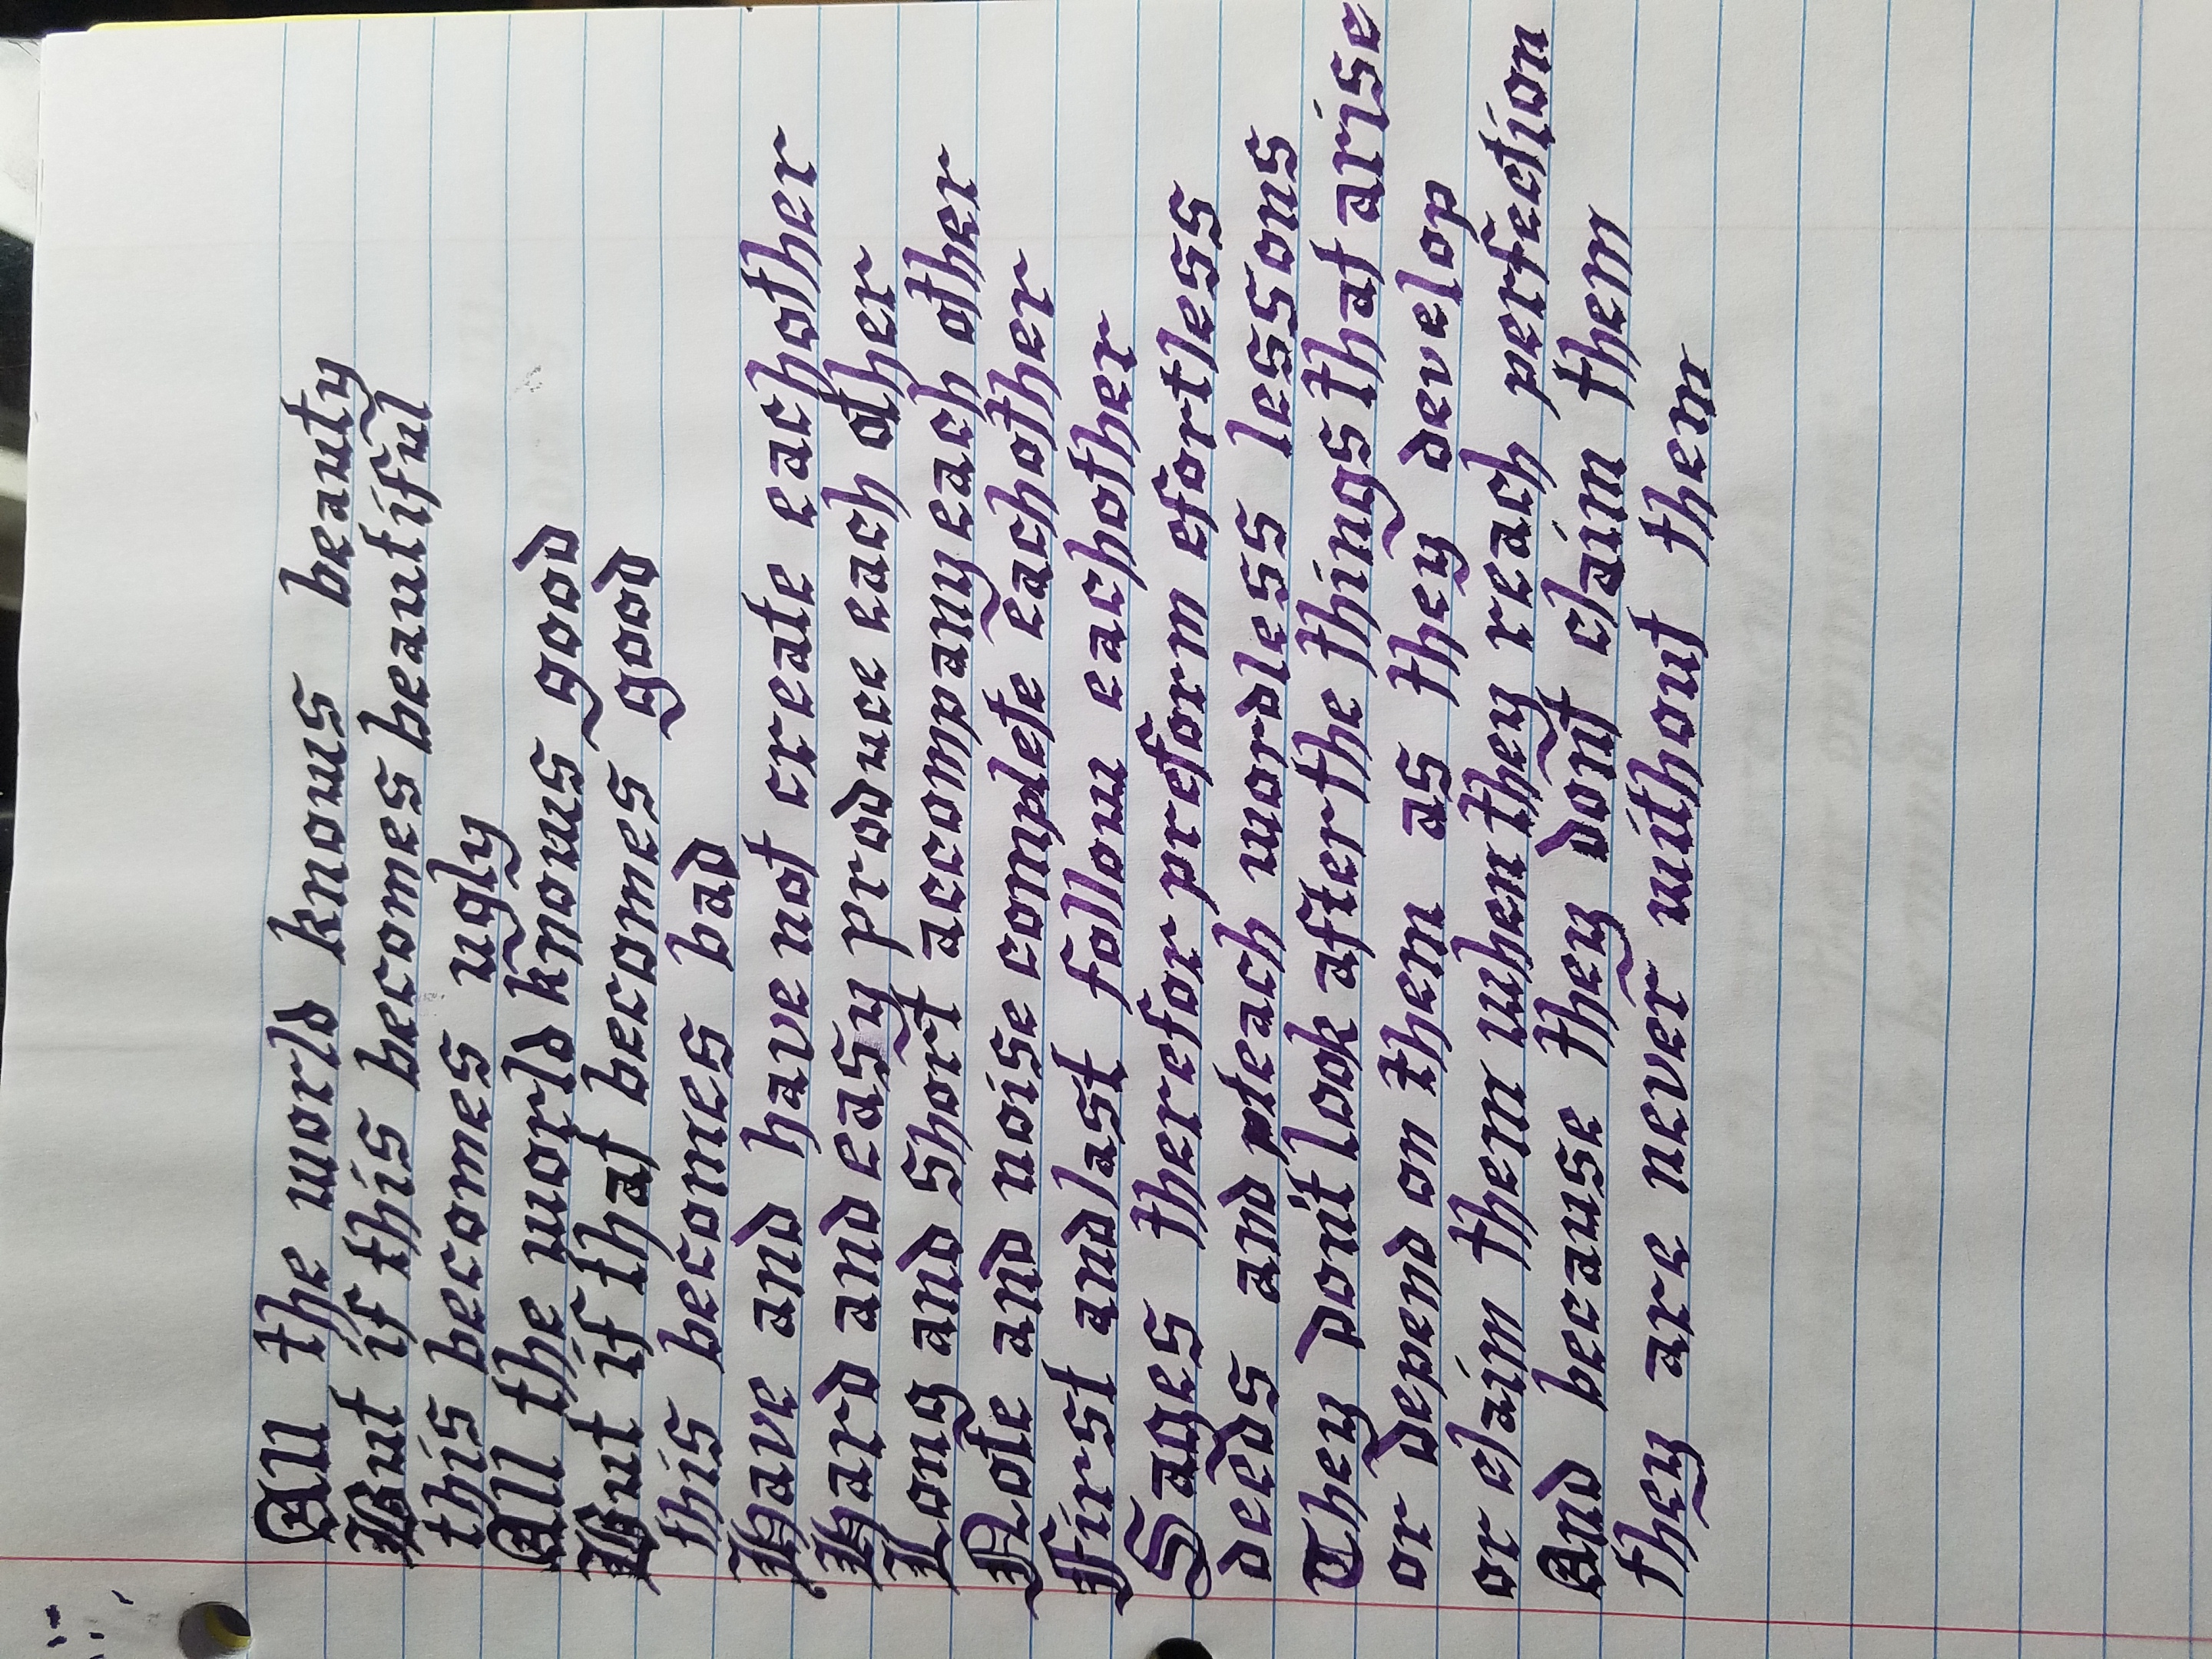 All the world knows beauty
But if this becomes beautiful
this becomes ugly
All the world knows good
But if that becomes good
this becomes bad
Have and have not create eachother
Hard and easy produce each other
Long and short accompany each other
Note and noise complete eachother
First and last follow eachother
Sages therefor preform efortless
deeds and teach wordless lessons
They don't look after the things that arise
or depend on them as they develop
or claim them when they reach perfection
And because they don't claim them
they are never without them